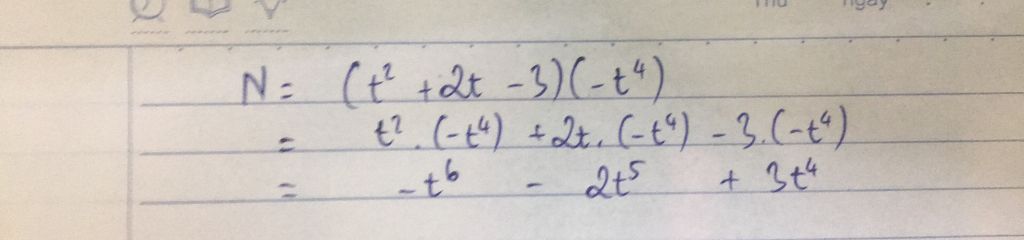 Thứ ngày
N = (t² + 2t - 3)(-t⁴)
= t² . (-t⁴) + 2t . (-t⁴) - 3.(-t⁴)
= -t⁶ - 2t⁵ + 3t⁴